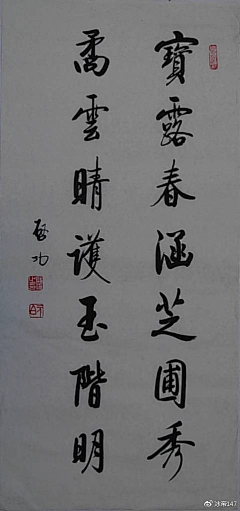 寶露春涵芝圃秀
矞雲晴護玉階明
啓功
@冰帝147